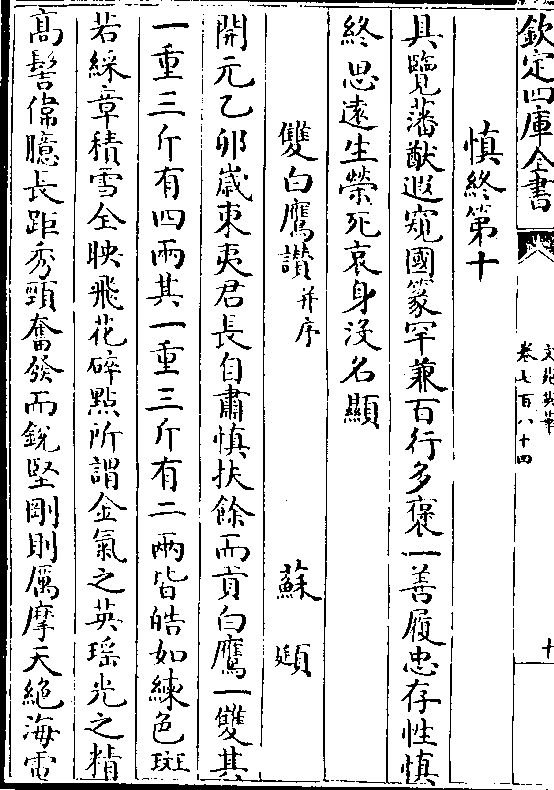 欽定四庫全書
卷七百八十四
十
慎終第十
具覽藩猷遐窺國篆罕兼百行多褒一善履忠存性慎
終思遠生榮死哀身沒名顯
雙白鷹讃并序
蘇頲
開元乙卯歲東夷君長自肅慎扶餘而貢白鷹一雙其
一重三斤有四兩其一重三斤有二兩皆皓如練色斑
若綵章積雪全映飛花碎點所謂金氣之英瑶光之精
髙髻偉臆長距秀頸奮發而銳堅剛則厲摩天絶海電